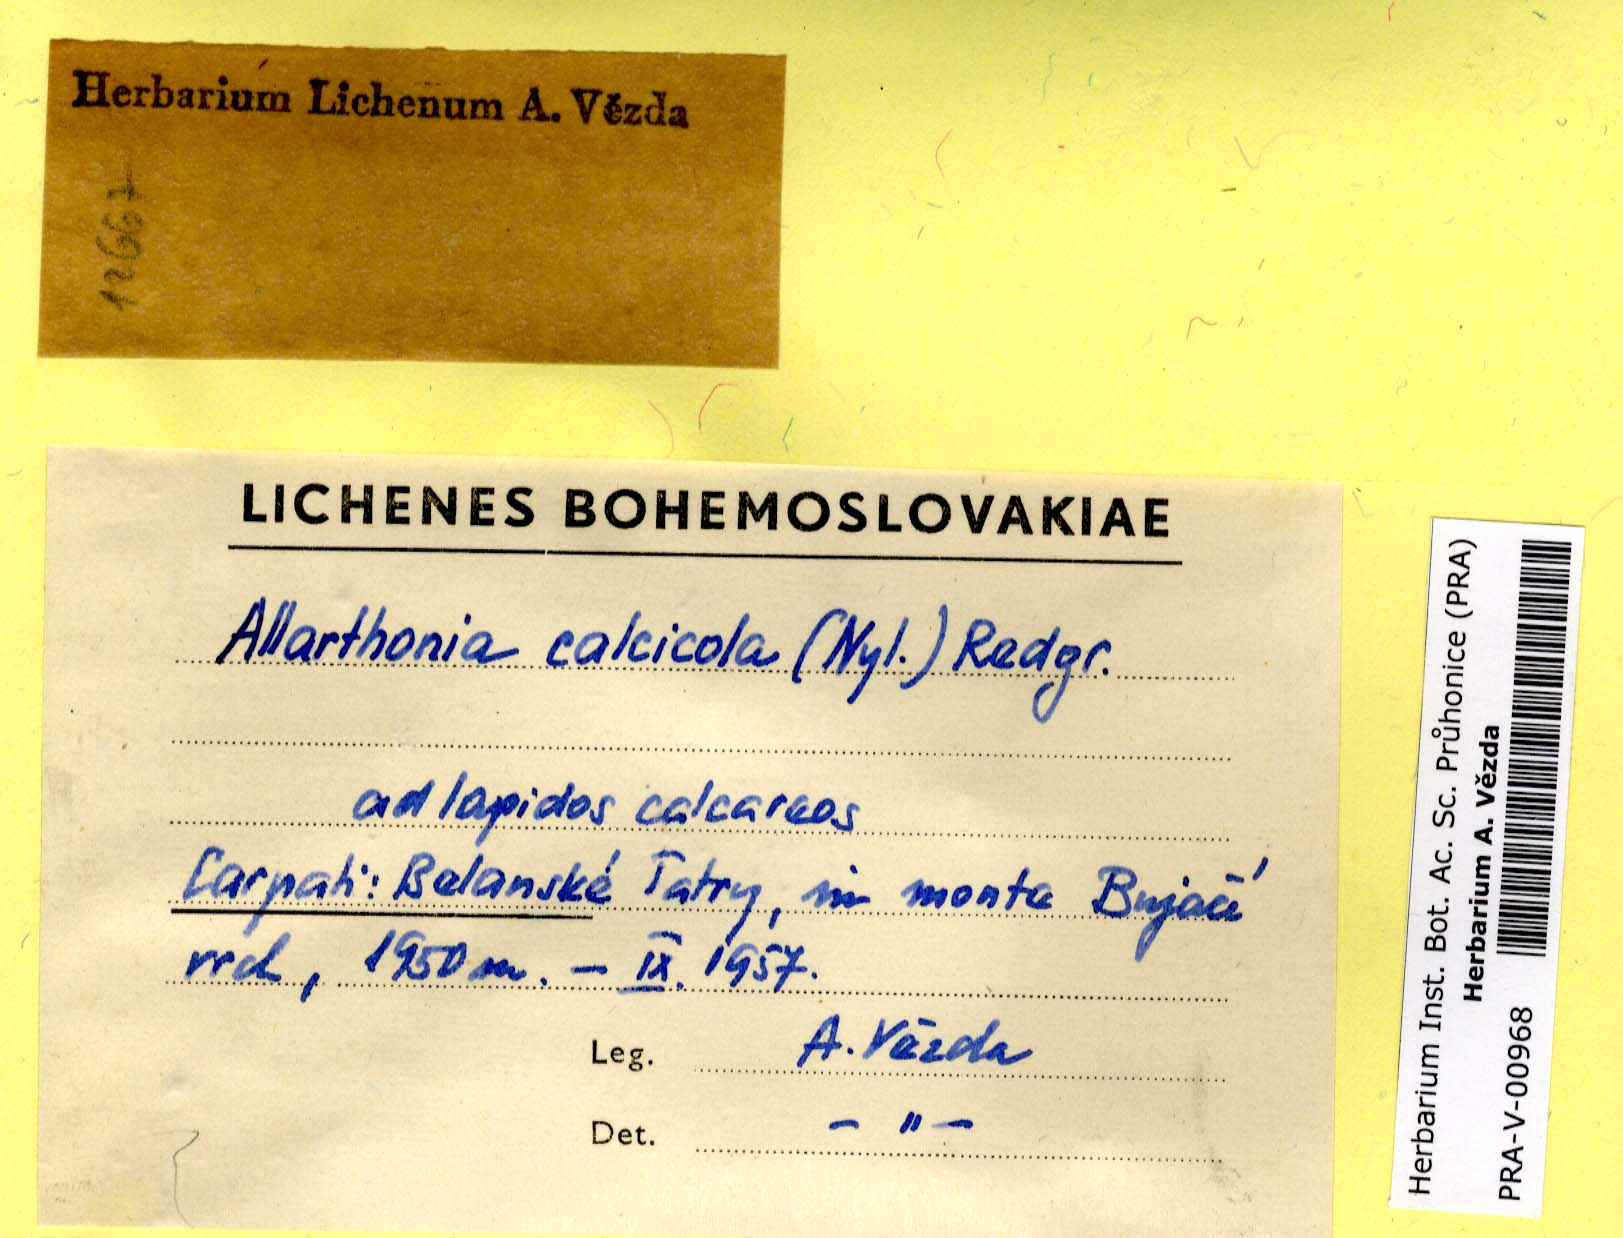 Herbarium Lichenum A. Vězda
12667
LICHENES BOHEMOSLOVAKIAE
Allarthonia calcicola (Nyl.) Redgr.
ad lapidos calcareos
Carpati: Belanské Tatry, in monte Bujačí
vrch, 1950 m. – IX. 1957.
Leg. A. Vězda
Det. – " –
Herbarium Inst. Bot. Ac. Sc. Průhonice (PRA)
Herbarium A. Vězda
PRA-V-00968